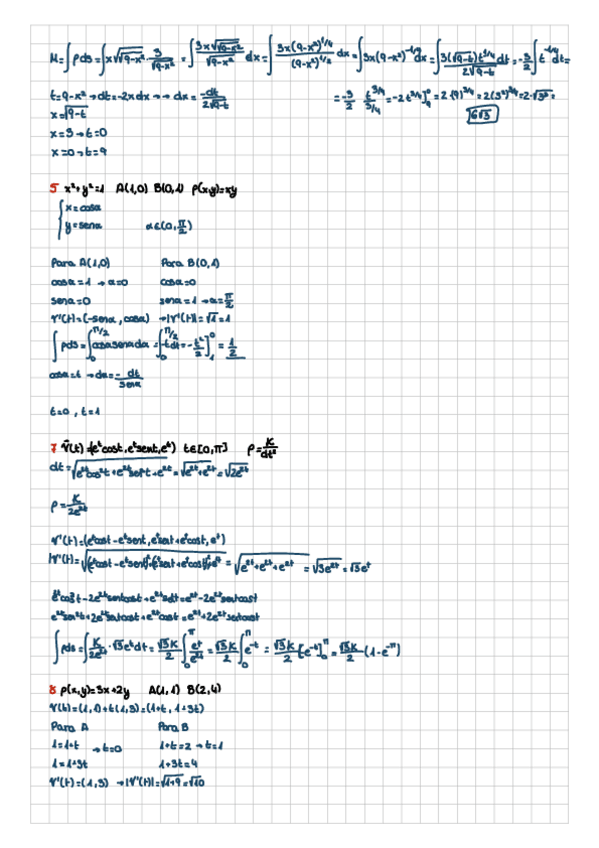 M=∫ρds=∫x√√9-x² · 3/√9-x² = ∫ 3x√√9-x²/√9-x² dx = ∫ 3x(9-x²)^1/4/(9-x²)^1/2 dx = ∫3x(9-x²)^-1/4 dx = ∫ 3(√9-t)t^-1/4/2√9-t dt = -3/2 ∫t^-1/4 dt=
t=9-x² → dt=-2xdx → → dx = -dt/2√9-t
= -3/2 t^3/4/3/4 = -2t^3/4]⁰₉ = 2(9)^3/4 = 2(3²)^3/4 = 2·√3³ =
x=√9-t
6√3
x=3→t=0
x=0→t=9
5 x²+y²=1 A(1,0) B(0,1) ρ(x,y)=xy
x=cosα
y=senα α∈(0,π/2)
Para A(1,0) Para B(0,1)
cosα=1 →α=0 cosα=0
senα=0 senα=1 →α=π/2
r'(t)=(-senα, cosα) →|r'(t)|=√1=1
∫ρds=∫₀^π/2 cosαsenαdα=∫₀^π/2 -tdt=-t²/2]₁⁰=1/2
cosα=t →dα=-dt/senα
t=0, t=1
7 r̄(t)=(eᵗcost,eᵗsent,eᵗ) t∈[0,π] ρ=K/dt²
dt=√e²ᵗcos²t+e²ᵗsen²t+e²ᵗ=√e²ᵗ+e²ᵗ=√2e²ᵗ
ρ=K/2e²ᵗ
r'(t)=(eᵗcost-eᵗsent,eᵗsent+eᵗcost,eᵗ)
|r'(t)|=√(eᵗcost-eᵗsent)²+(eᵗsent+eᵗcost)²+e²ᵗ=√e²ᵗ+e²ᵗ+e²ᵗ=√3e²ᵗ=√3eᵗ
e²ᵗcos²t-2e²ᵗsentcost+e²ᵗsen²t=e²ᵗ-2e²ᵗsentcost
e²ᵗsen²t+2e²ᵗsentcost+e²ᵗcost=e²ᵗ+2e²ᵗsentcost
∫ρds=∫K/2e²ᵗ·√3eᵗdt=√3K/2∫₀^π eᵗ/e²ᵗ=√3K/2∫₀^π e⁻ᵗ=√3K/2[e⁻ᵗ]₀^π=√3K/2(1-e^-π)
8 ρ(x,y)=3x+2y A(1,1) B(2,4)
r(t)=(1,1)+t(1,3)=(1+t,1+3t)
Para A Para B
1=1+t →t=0 1+t=2 →t=1
1=1+3t 1+3t=4
r'(t)=(1,3) →|r'(t)|=√1+9=√10